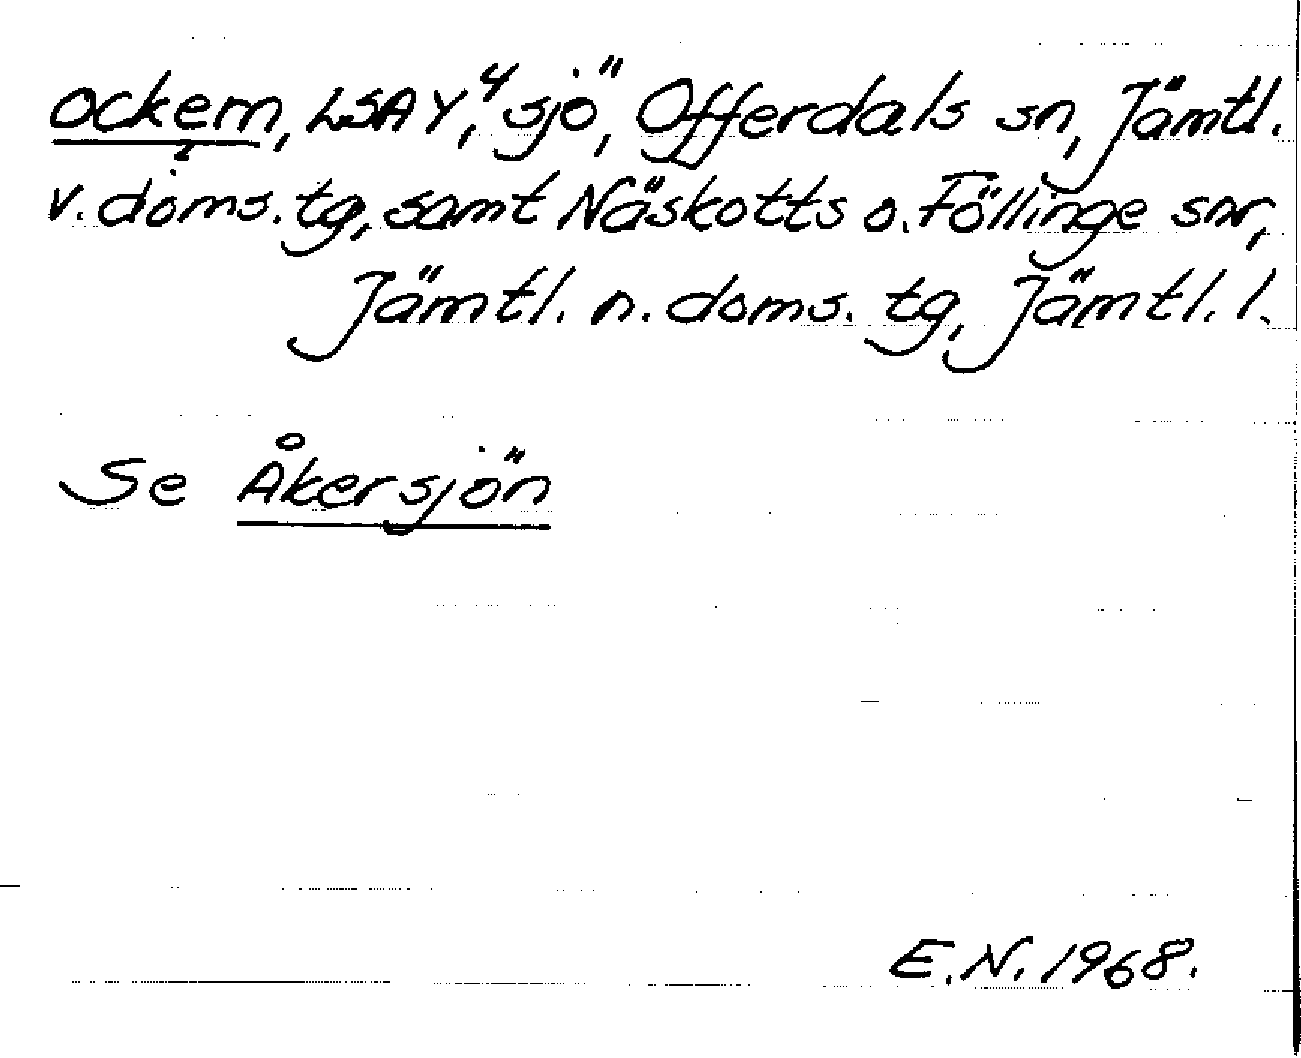 ockem, LSAY, "sjö", Offerdals sn, Jämtl.
v. doms. tg, samt Näskotts o. Föllinge snr,
Jämtl. n. doms. tg, Jämtl. l.
Se Åkersjön
E.N. 1968.